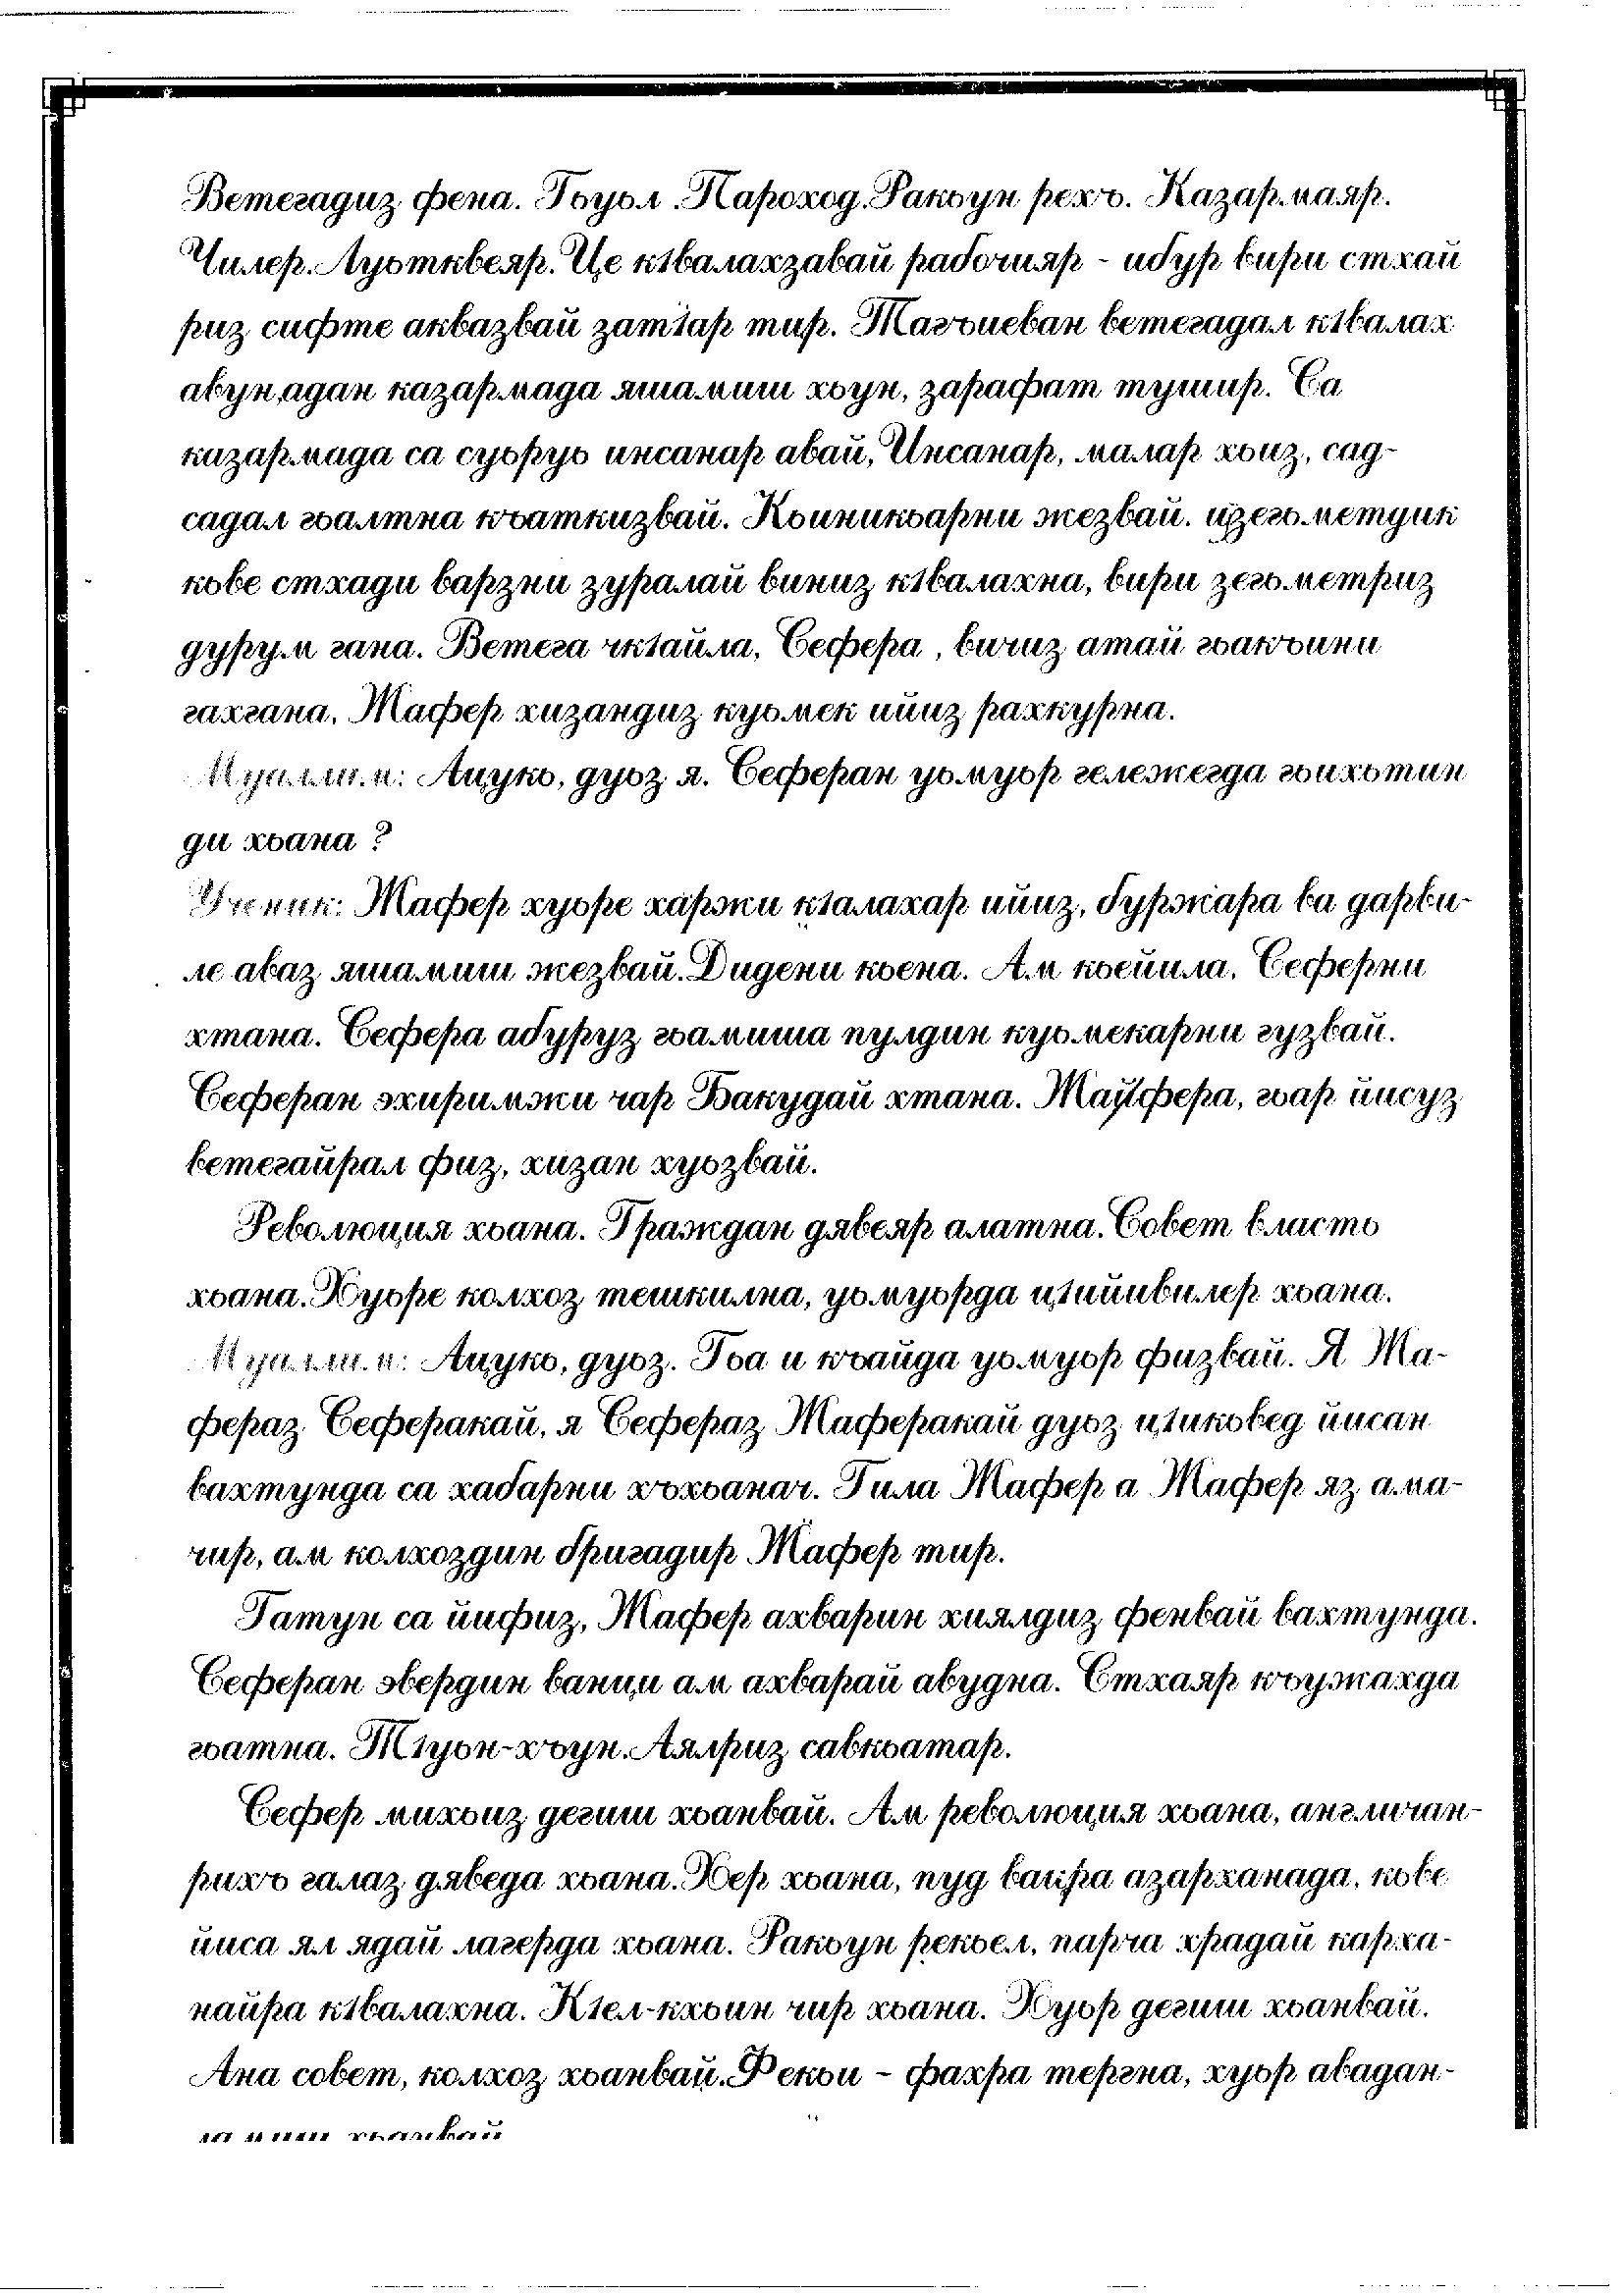 Ветегадиз фена. Гьуьл .Пароход.Ракьун рехъ. Казармаяр.
Чилер.Луьтквеяр.Це к1валахзавай рабочияр - ибур вири стхай
риз сифте аквазвай зат1ар тир. Тагъиеван ветегадал к1валах
авун,адан казармада яшамиш хьун, зарафат тушир. Са
казармада са суьруь инсанар авай, Инсанар, малар хьиз, сад-
садал гьалтна къаткизвай. Кьиникьарни жезвай. изегьметдик
кьве стхади варзни зуралай виниз к1валахна, вири зегьметриз
дурум гана. Ветега чк1айла, Сефера , вичиз атай гьакъини
гахгана, Жафер хизандиз куьмек ийиз рахкурна.
Муаллим: Ацукь, дуьз я. Сеферан уьмуьр гележегда гьихьтин
ди хьана ?
Ученик: Жафер хуьре харжи к1алахар ийиз, буржара ва дарви-
ле аваз яшамиш жезвай.Дидени кьена. Ам кьейила, Сеферни
хтана. Сефера абуруз гьамиша пулдин куьмекарни гузвай.
Сеферан эхиримжи чар Бакудай хтана. Жафера, гьар йисуз
ветегайрал физ, хизан хуьзвай.
Революция хьана. Граждан дявеяр алатна.Совет власть
хьана.Хуьре колхоз тешкилна, уьмуьрда ц1ийивилер хьана.
Муаллим: Ацукь, дуьз. Гьа и къайда уьмуьр физвай. Я Жа-
фераз Сеферакай, я Сефераз Жаферакай дуьз ц1икьвед йисан
вахтунда са хабарни хъхьанач. Гила Жафер а Жафер яз ама-
чир, ам колхоздин бригадир Жафер тир.
Гатун са йифиз, Жафер ахварин хиялдиз фенвай вахтунда.
Сеферан эвердин ванци ам ахварай авудна. Стхаяр къужахда
гьатна. Т1уьн-хъун.Аялриз савкьатар.
Сефер михьиз дегиш хьанвай. Ам революция хьана, англичан-
рихъ галаз дяведа хьана.Хер хьана, пуд вацра азарханада, кьве
йиса ял ядай лагерда хьана. Ракьун рекьел, парча храдай карха-
найра к1валахна. К1ел-кхьин чир хьана. Хуьр дегиш хьанвай.
Ана совет, колхоз хьанвай.Фекьи - фахра тергна, хуьр авадан-
ламиш хьанвай